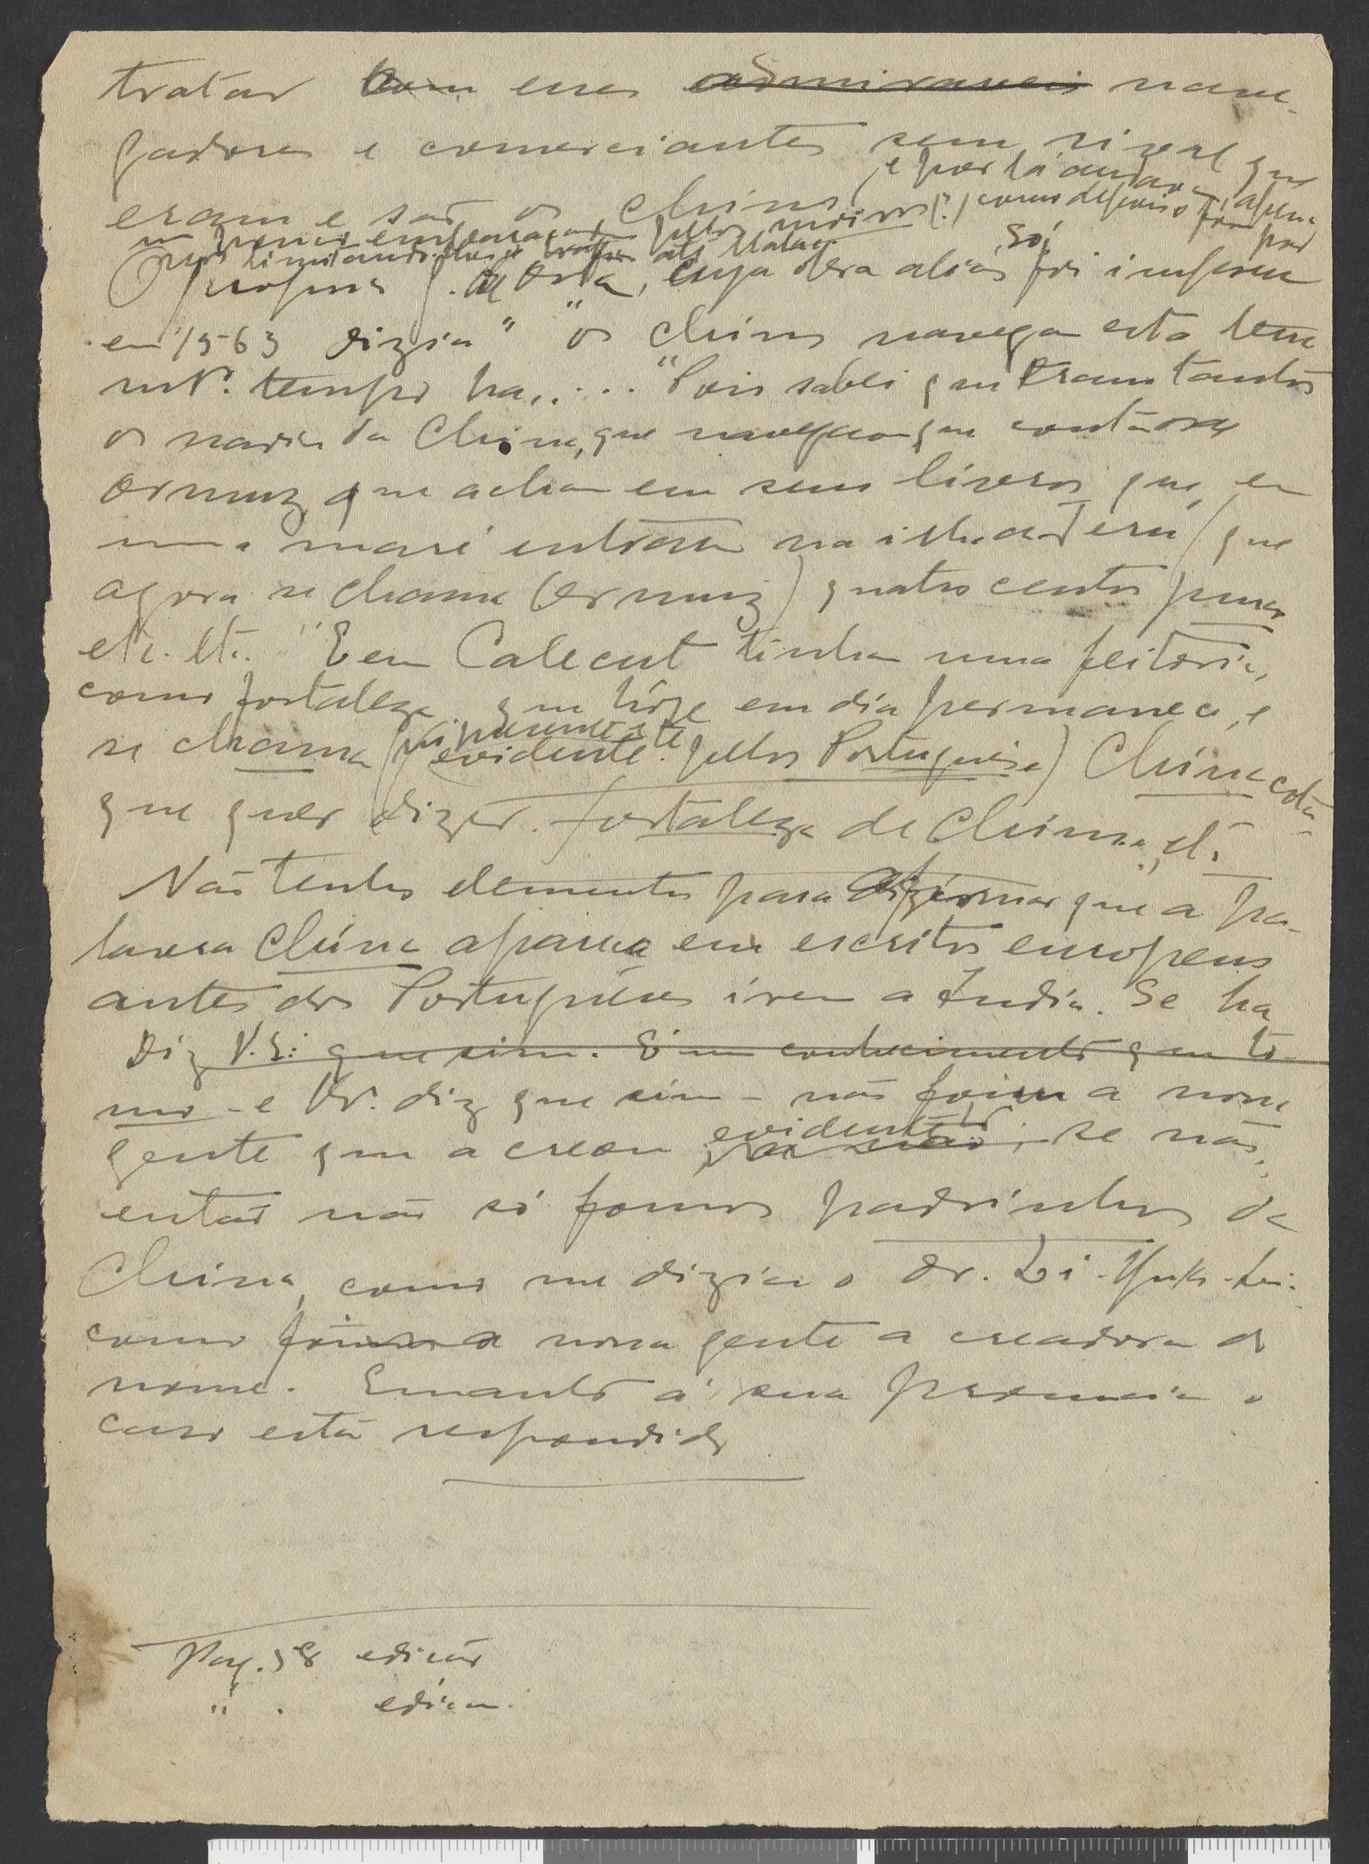 tratar com esses admiraveis nave-
gadores e comerciantes sem rival que
e por lá andavam
eram e são os chins (?) como depois foram por
pelos mouros
limitando-lhes o trafego até Malaca
O proprio G. de Orta, cuja obra aliás só foi impressa
em 1563 dizia " "os chins navegam esta terra
mto. tempo ha..... "Pois sabei que eram tantos
os navios da China, que navegavam que contam os de
Ormuz que acham em seus livros que, em
uma maré entrarão na ilha de Jerú (que
agora se chama Ormuz) quatrocentos juncos
etc. etc. "E em Calecut tinham uma feitoria,
como fortaleza, que hoje em dia permanece, e
se chama (principalmente evidentete. pelos Portugueses) China cota
que quer dizer fortaleza de Chins", etc.
Não tenho elementos para afirmar que a pa-
lavra China apareça em escritos europeus
antes dos Portugueses irem a India. Se ha
Diz V. E: que sim. E' um conhecimento que to-
mo - e Vr. diz que sim - não foi a nossa
gente que a creou evidentete; se não,
então não só fomos padrinhos da
China, como me dizia o Dr. Li-
como foi a nossa gente a creadora do
nome. Emquanto á sua pronuncia o
caso está respondido
Pag. 58 edicão
" . edicão.